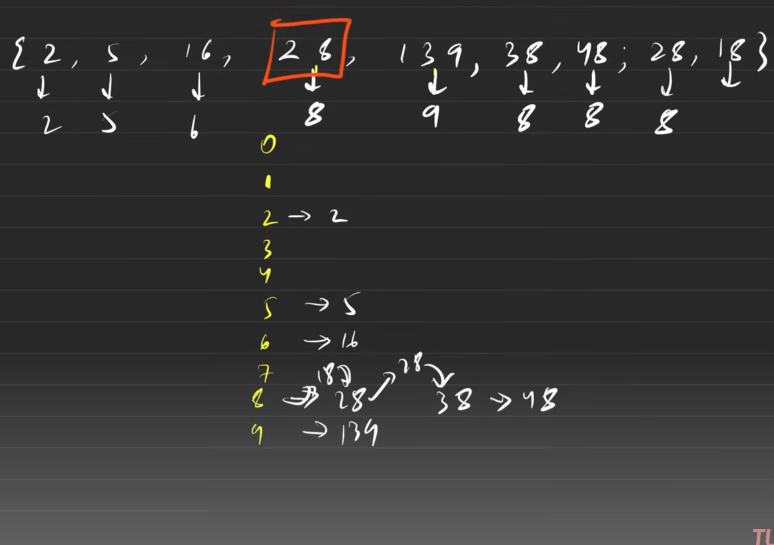 {2, 5, 16, 28, 139, 38, 48; 28, 18}
↓ ↓ ↓ ↓ ↓ ↓ ↓ ↓ ↓
2 5 6 8 9 8 8 8
0
1
2 → 2
3
4
5 → 5
6 → 16
7
18 28
8 → 28 38 → 48
9 → 139
TU